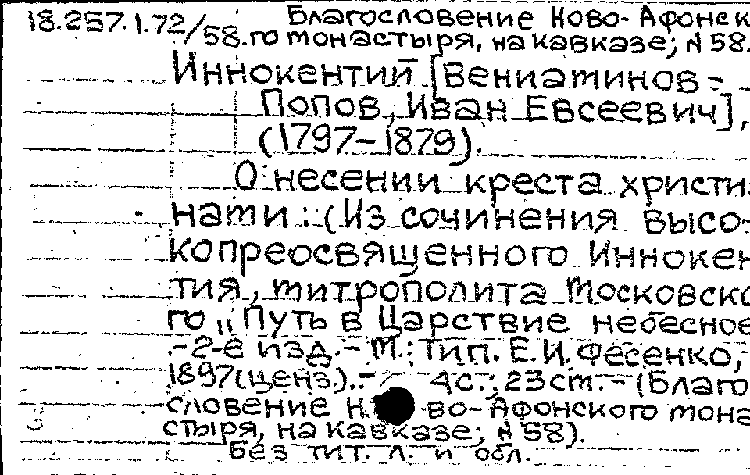 18.257.1.72/58. Благословение Ново-Афонск
го монастыря, на Кавказе; № 58.
Иннокентий [Вениаминов-
Попов, Иван Евсеевич],
(1797-1879).
О несении креста христи
нами: (Из сочинения высо-
копреосвященного Иннокен
тия, митрополита Московско
го „Путь в Царствие небесное
.-2-е изд.- М.: тип. Е.И. Фесенко,
1897(ценз.).- 4с.; 23см.- (Благо
словение Ново-Афонского мона
стыря, на Кавказе; № 58).
Без тит. л. и обл.